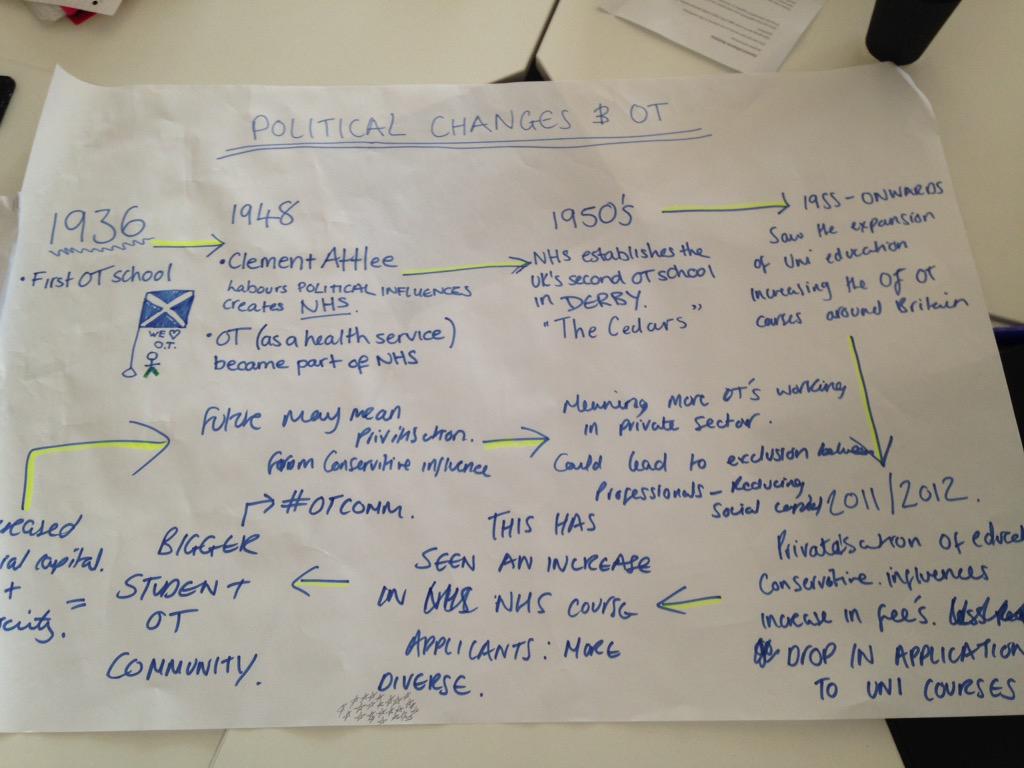 POLITICAL CHANGES & OT
1936
• First OT school
WE ♡
O.T.
1948
• Clement Attlee
Labours POLITICAL INFLUENCES
creates NHS.
• OT (as a health service)
became part of NHS
1950's
NHS establishes the
UK's second OT school
in DERBY.
"The Cedars"
1955 - ONWARDS
Saw the expansion
of Uni education
increasing the OF OT
courses around Britain
2011/2012.
Privatisation of educat
Conservitive influences
increase in fee's.
DROP IN APPLICATION
TO UNI COURSES
THIS HAS
SEEN AN INCREASE
IN NHS COURSE
APPLICANTS: MORE
DIVERSE.
BIGGER
STUDENT
OT
COMMUNITY.
#OTCOMM.
reased
ral capital.
+
=
Future may mean
from Conservitive influence
Meaning more OT's working
in private sector.
Could lead to exclusion between
Professionals - Reducing
Social capital